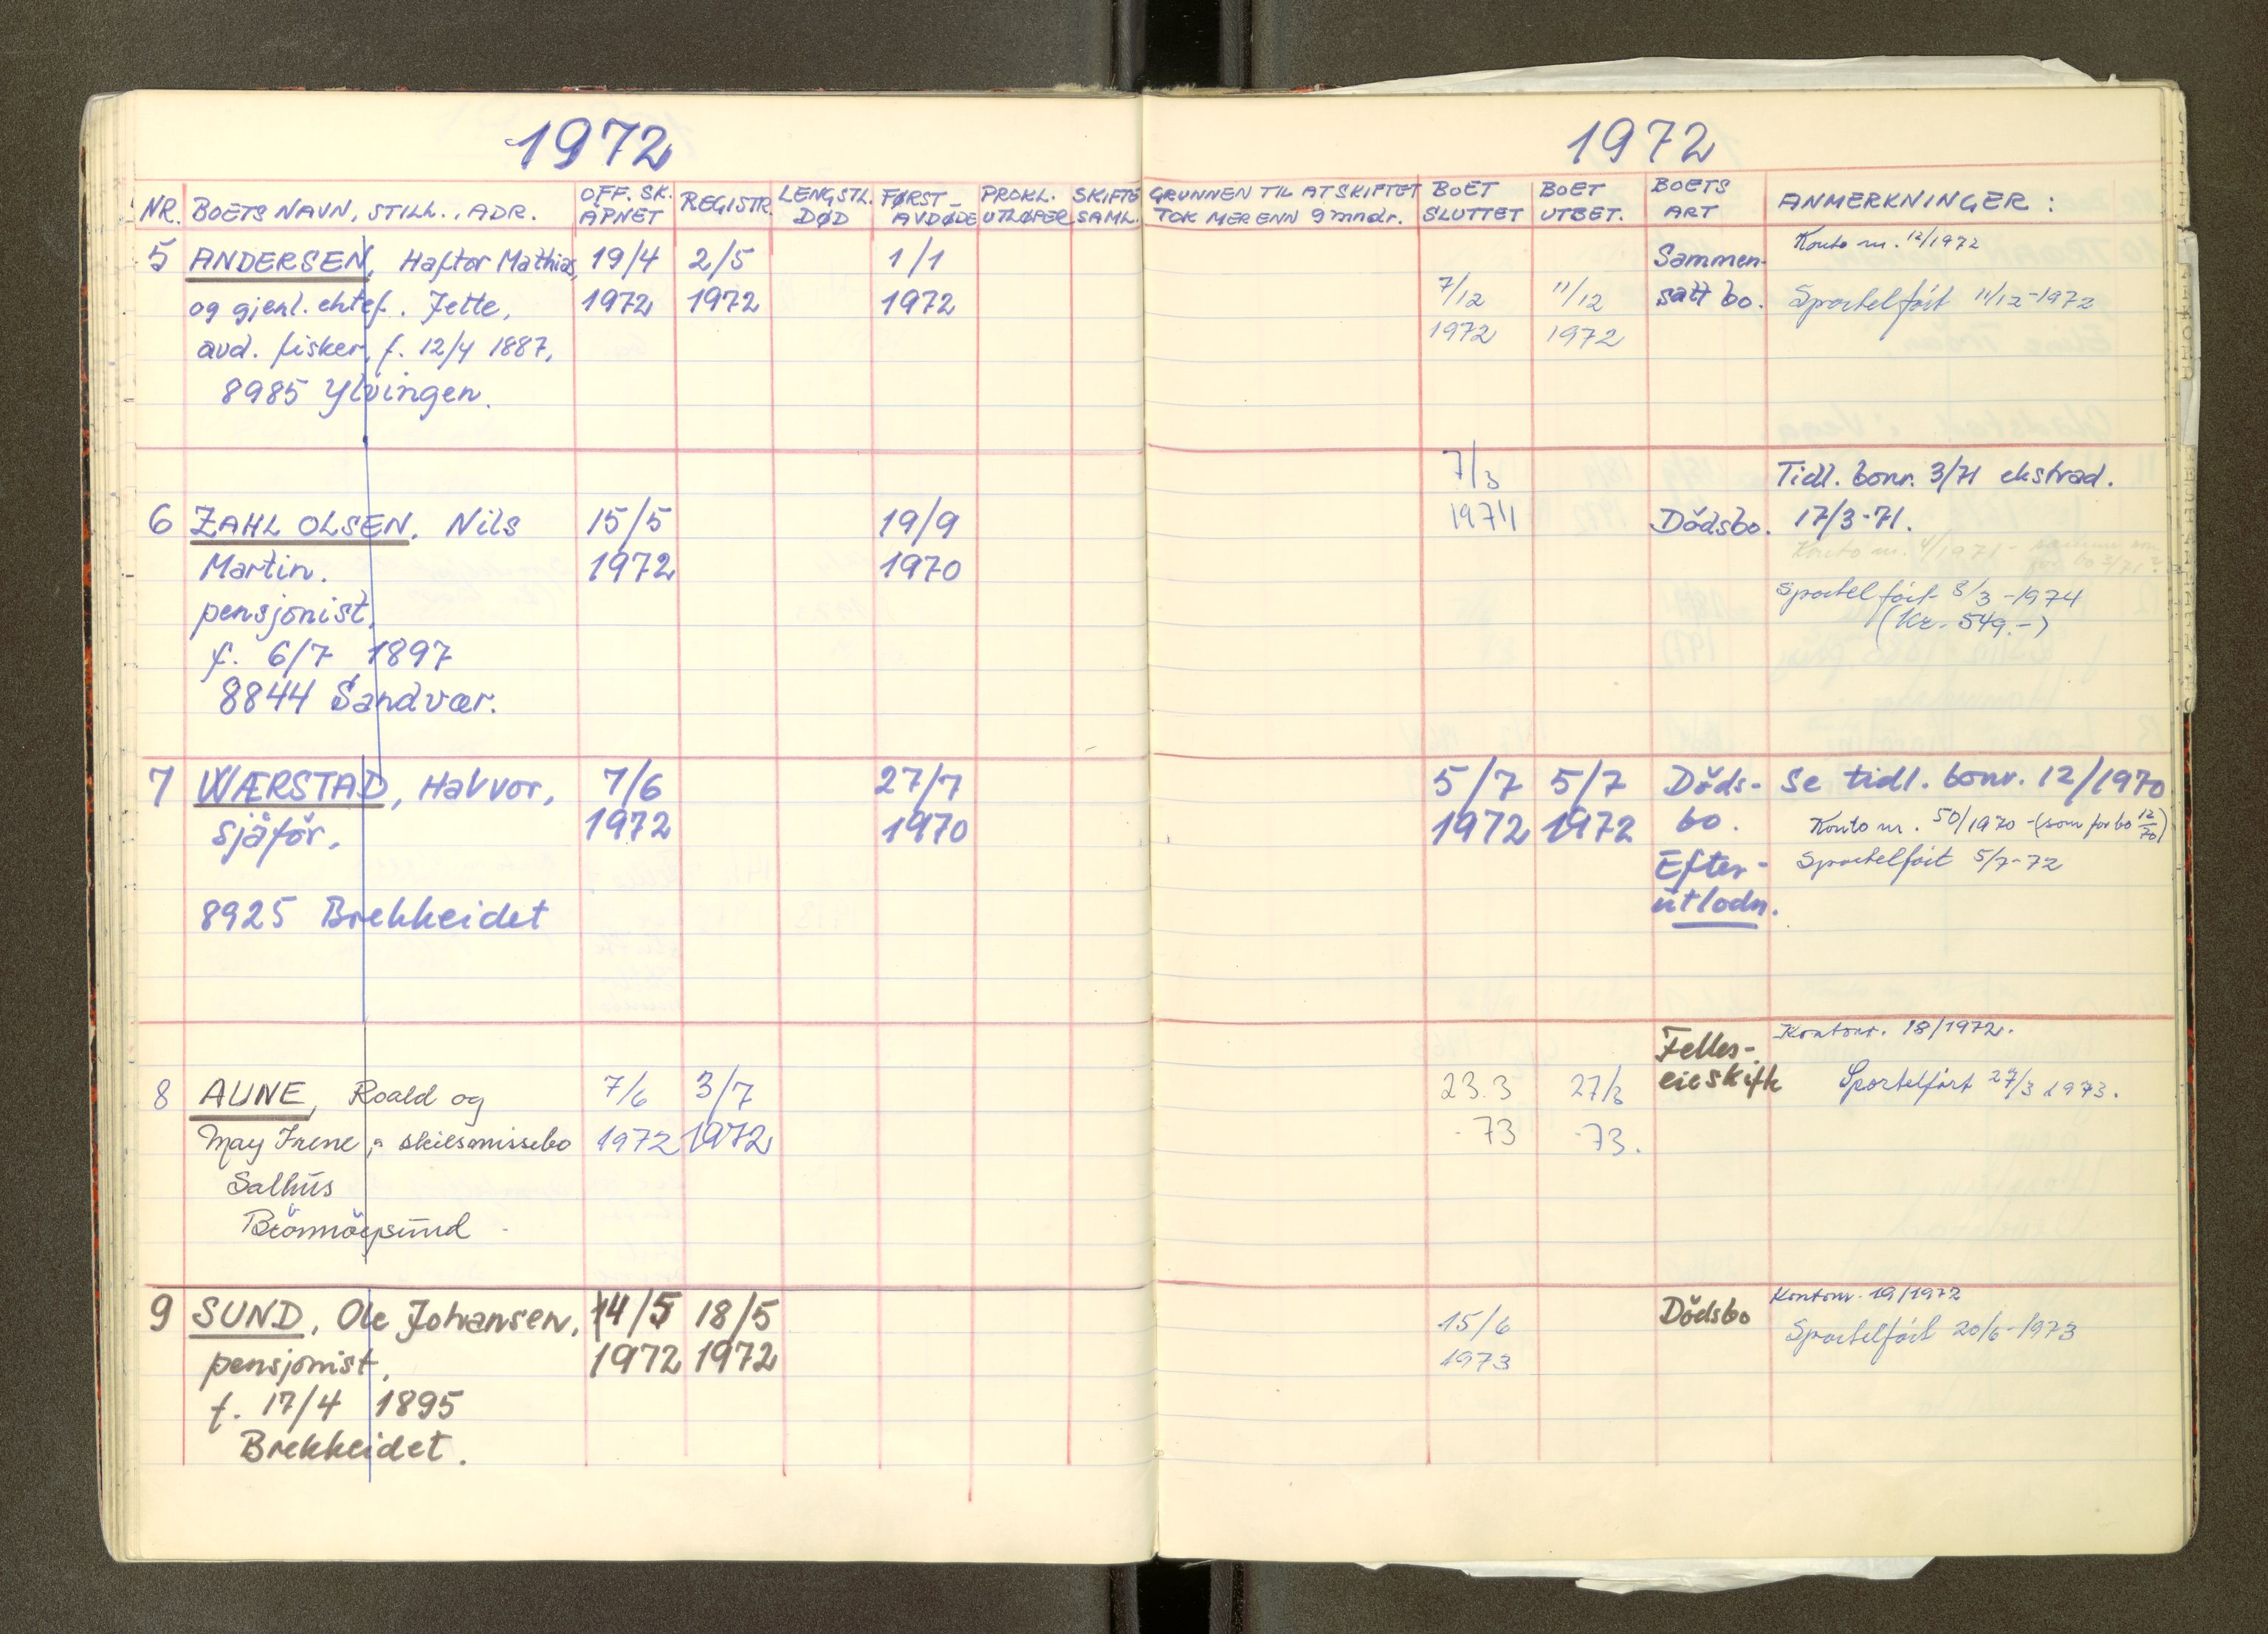 1972
NR. BOETS NAVN, STILL., ADR. OFF. SK. ÅPNET REGISTR. LENGSTL. DØD FØRST-AVDØDE PROKL. UTLØPER SKIFTE SAML.
5 ANDERSEN, Haftor Mathias, 19/4 2/5 1/1
og gjenl. ektef. Jette, 1972 1972 1972
avd. fisker, f. 12/4 1887,
8985 Ylvingen.
6 ZAHL OLSEN, Nils 15/5 19/9
Martin. 1972 1970
pensjonist,
f. 6/7 1897
8844 Sandvær.
7 WÆRSTAD, Halvor, 7/6 27/7
sjåfør, 1972 1970
8925 Brekkeidet
8 AUNE, Roald og 7/6 3/7
May Irene, skilsmissebo 1972 1972
Salhus
Brönnöysund
9 SUND, Ole Johansen, 14/5 18/5
pensjonist, 1972 1972
f. 17/4 1895
Brekkeidet.
1972
GRUNNEN TIL AT SKIFTET TOK MER ENN 9 mndr. BOET SLUTTET BOET UTBET. BOETS ART ANMERKNINGER:
Konto nr. 12/1972
Sammen-
7/12 11/12 satt bo. Sportelført 11/12-1972
1972 1972
7/3 Tidl. bonr. 3/71 ekstrad.
Dödsbo. 17/3-71.
Konto nr. 4/1971 -
Sportelført 8/3-1974
(Kr. 549.-)
5/7 5/7 Döds- Se tidl. bonr. 12/1970
1972 1972 bo. Konto nr. 50/1970 - (som for bo 12/70)
Efter- Sportelført 5/7-72
utlodn.
Felles- Kontonr. 18/1972.
23.3 27/3 eieskifte Sportelført 27/3 1973.
-73 -73.
Kontonr. 19/1972
15/6 Dödsbo Sportelført 20/6-1973
1973